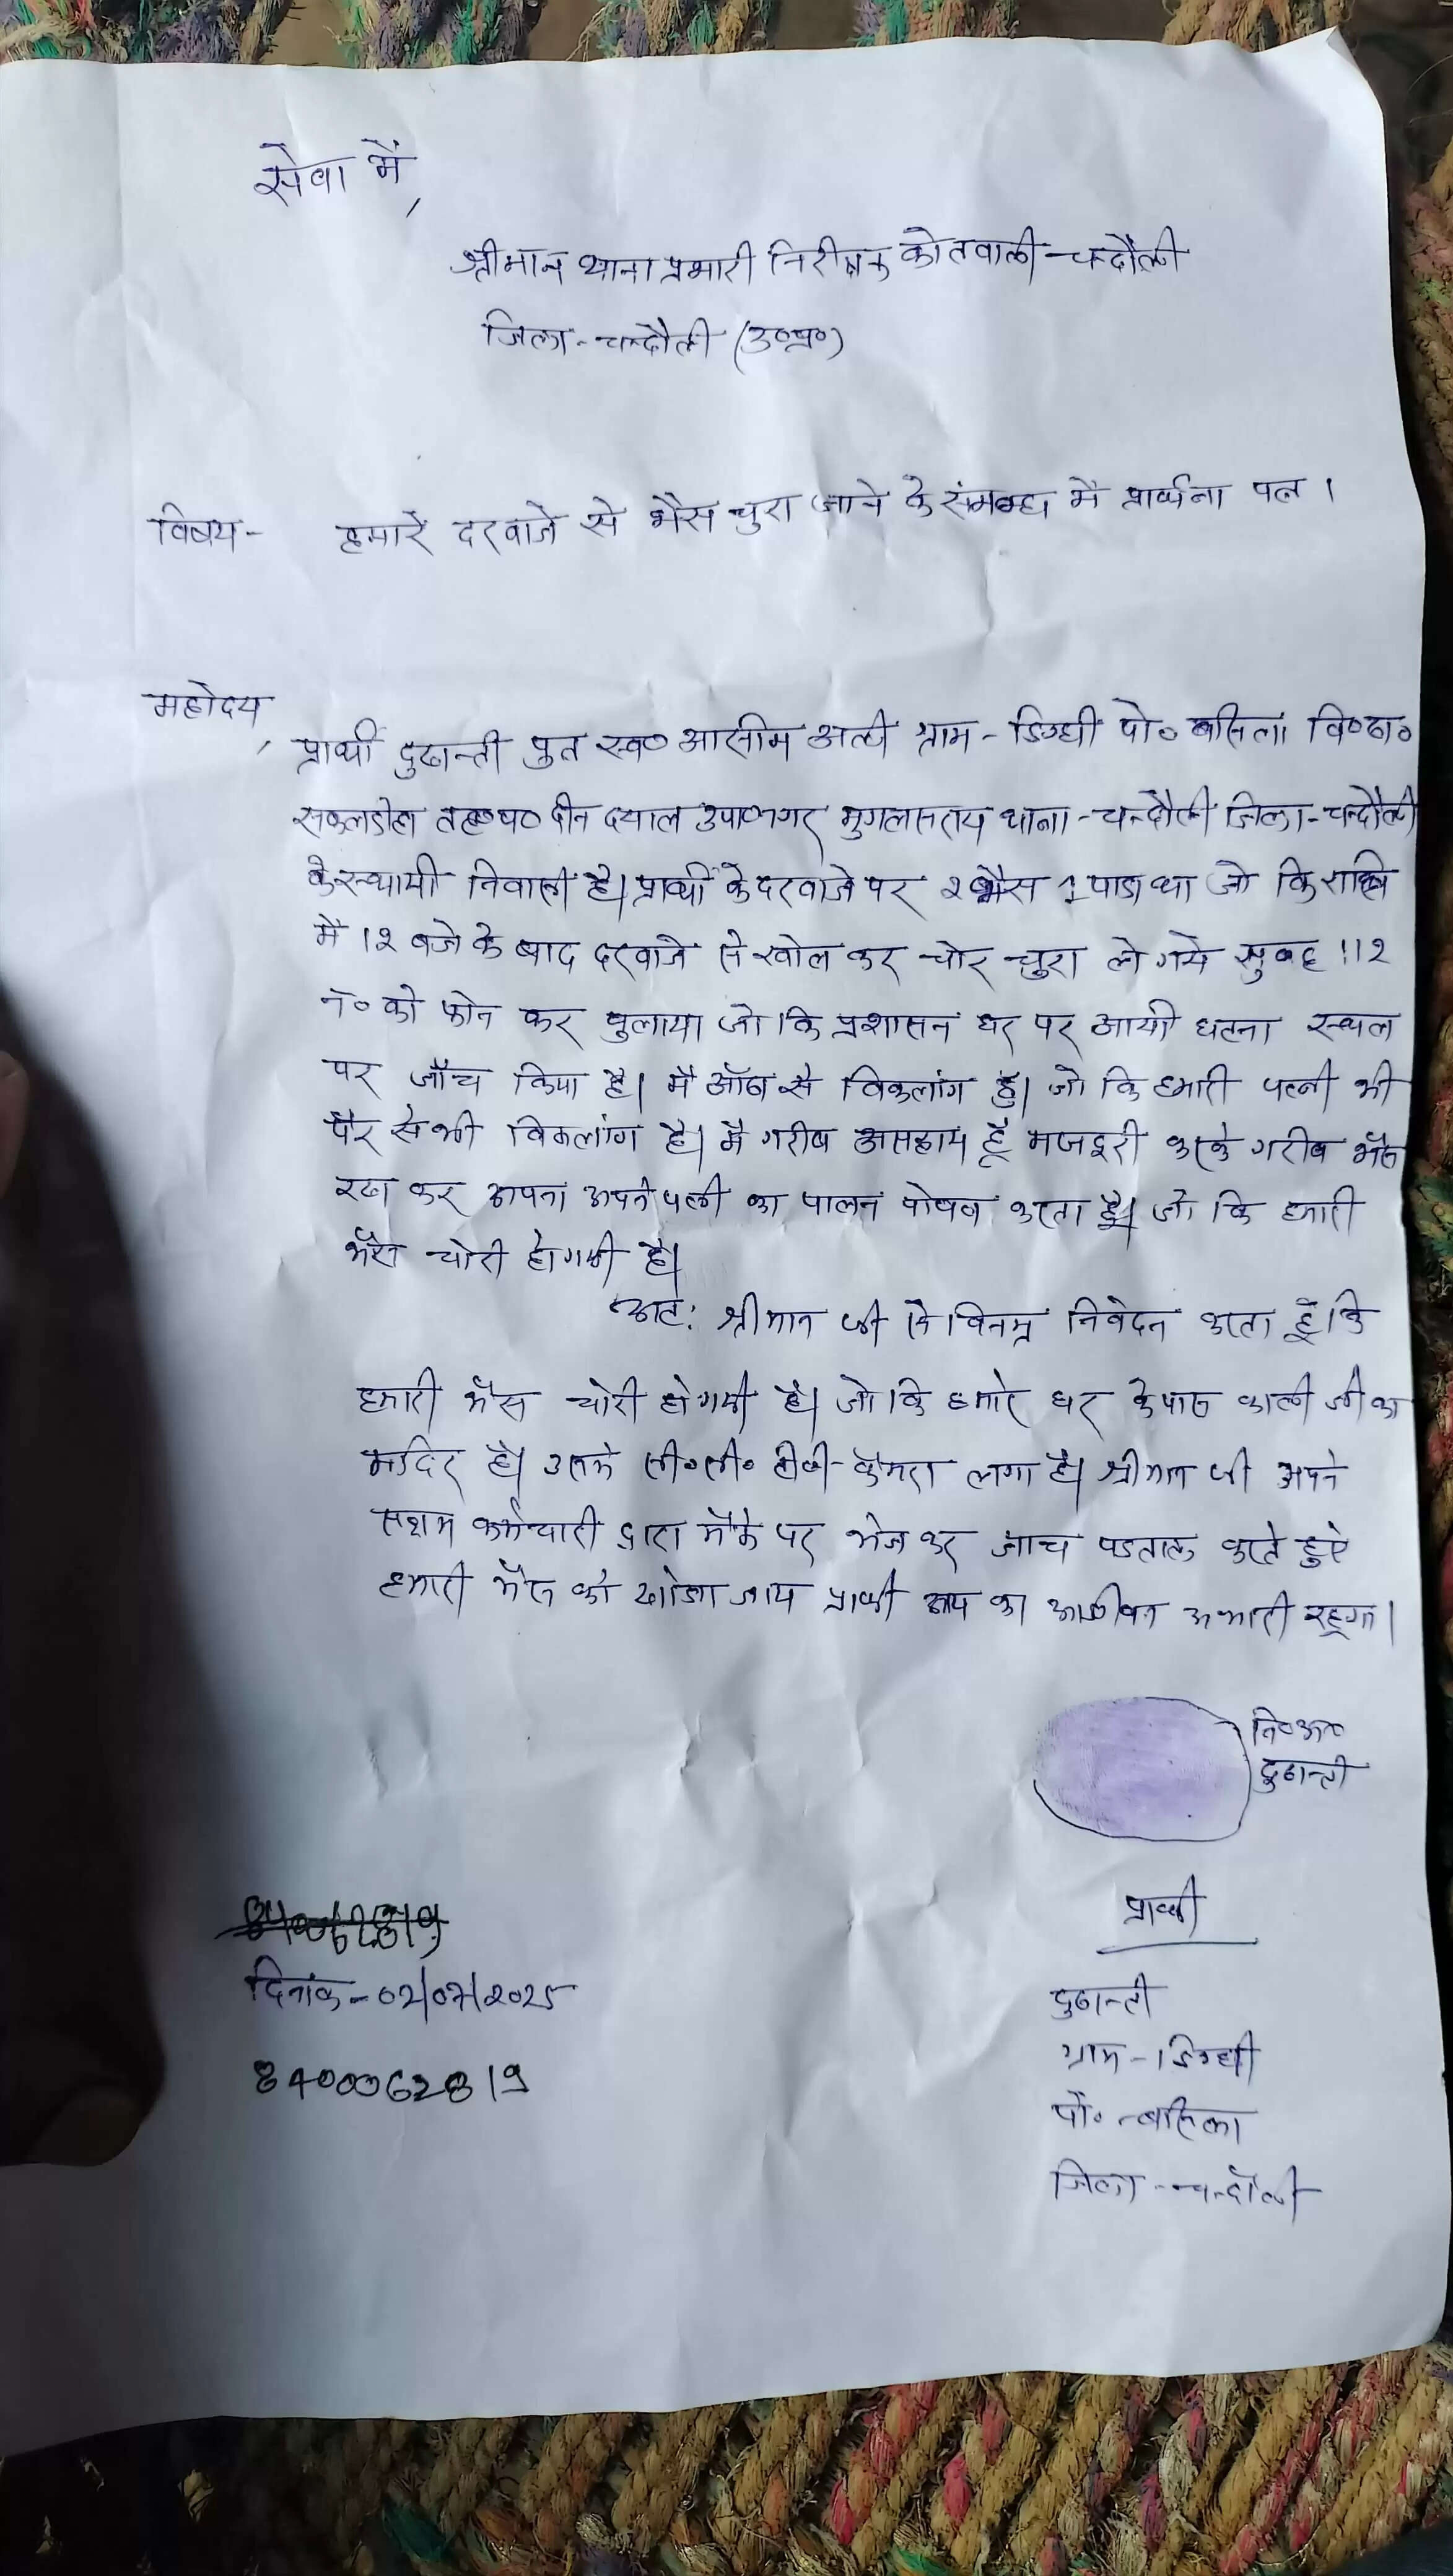 सेवा में,
श्रीमान थाना प्रभारी निरीक्षक कोतवाली - चन्दौली
जिला - चन्दौली (उ०प्र०)
विषय - हमारे दरवाजे से भैस चुरा जाने के संमबन्ध मे प्रार्थना पत्र ।
महोदय,
प्रार्थी दुखन्ती पुत्र स्व० आसीम अली ग्राम - डिग्घी पो० बसिला वि०ख०
सकलडीहा तह० प० दीन दयाल उपा०नगर मुगलसराय थाना - चन्दौली जिला - चन्दौली
के स्थायी निवासी है। प्रार्थी के दरवाजे पर २ भैस 1 पाडा था जो कि रात्रि
मे 12 बजे के बाद दरवाजे से खोल कर चोर चुरा ले गये सुबह 112
नं० को फोन कर बुलाया जो कि प्रशासन घर पर आयी घटना स्थल
पर जाँच किया है। मै आँख से विकलांग हूँ। जो कि हमारी पत्नी भी
पैर से भी विकलांग है। मै गरीब असहाय हूँ मजदूरी करके गरीब भैस
रख कर अपना अपने पत्नी का पालन पोषण करता हूँ। जो कि हमारी
भैस चोरी हो गयी है।
अतः श्रीमान जी से विनम्र निवेदन करता हूँ कि
हमारी भैस चोरी हो गयी है। जो कि हमारे घर के पास काली जी का
मन्दिर है। उसमे सी०सी० टीवी - कैमरा लगा है। श्रीमान जी अपने
सक्षम कर्मचारी द्वारा मौके पर भेज कर जाच पडताल करते हुए
हमारी भैस को खोजा जाय प्रार्थी आप का आजीवन अभारी रहूगा।
नि०अ०
दुखन्ती
प्रार्थी
दिनांक - 02/07/2025
दुखन्ती
ग्राम - डिग्घी
8400062819
पो० - बसिला
जिला - चन्दौली